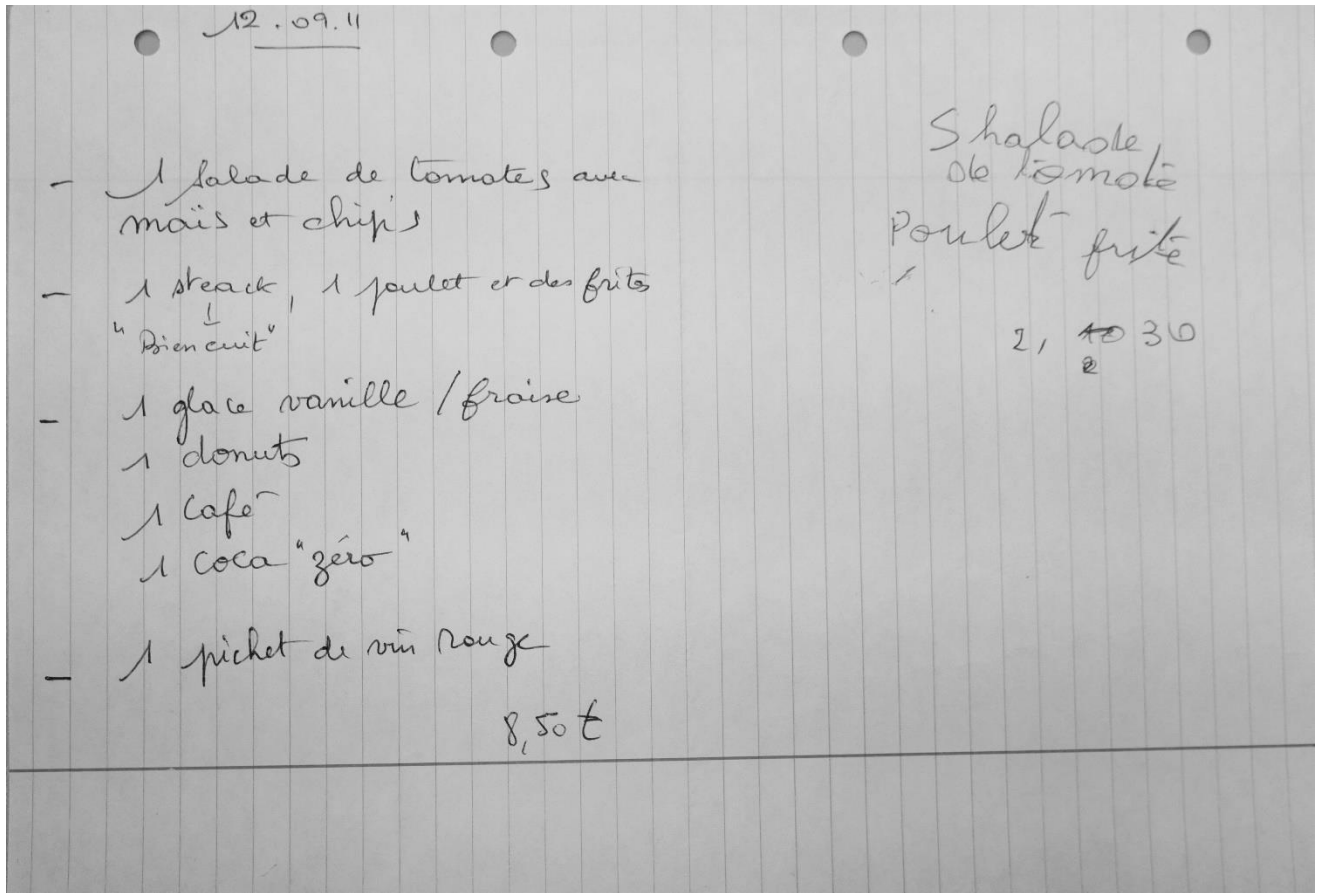 12.09.11
- 1 Salade de tomates avec
maïs et chips
- 1 steack, 1 poulet et des frites
"Bien cuit"
- 1 glace vanille / fraise
1 donuts
1 Café
1 Coca "zéro"
- 1 pichet de vin rouge
8,50 €
Shalade
de tomate
Poulet frite
2, 30
2